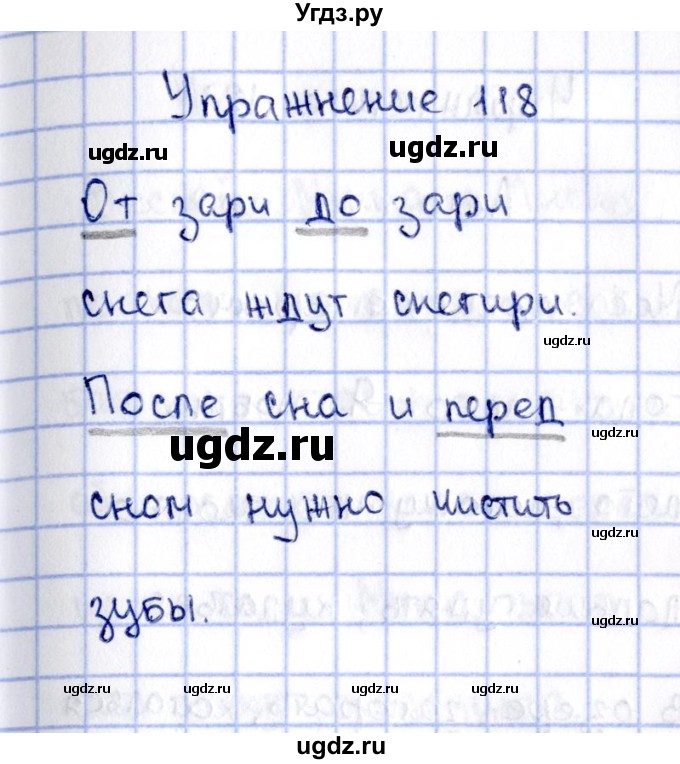 Угдз.ру
Упражнение 118
ugdz.ru ugdz.ru
От зари до зари
снега ждут снегири.
ugdz.ru
После сна и перед
ugdz.ru ugdz.ru
сном нужно чистить
ugdz.ru
зубы.
ugdz.ru
ugdz.ru ugdz.ru ugdz.ru ugdz.ru
ugdz.ru